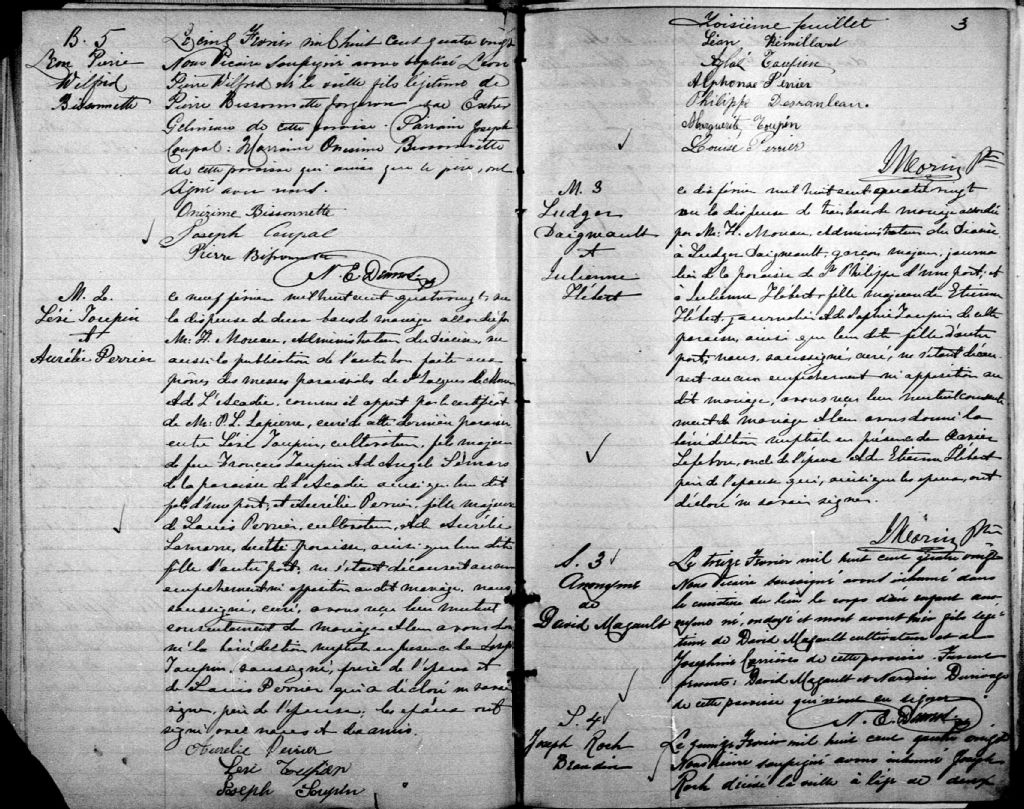 B. 5
Léon Pierre
Wilfrid
Bissonnette
Le cinq Février mil huit cent quatre vingt
Nous Vicaire soussigné avons baptisé Léon
Pierre Wilfred né le veille fils légitime de
Pierre Bissonnette forgeron et de Esther
Gélineau de cette paroisse. Parrain Joseph
Coupal : Marraine Onesime Bissonnette
de cette paroisse qui ainsi que le père, ont
signé avec nous.
Onézime Bissonnette
Joseph Coupal
Pierre Bissonnette
N. E. Demers
M. 2.
Lési Toupin
&
Aurélie Perrier
ce neuf février mil huit cent quatrevingt, vu
la dispense de deux bans de mariage accordée par
Mr. H. Moreau, Administrateur du Diocèse, vu
aussi la publication de l'autre ban faite aux
prônes des messes paroissiales de St Jacques le Mineur
& de L'Acadie, comme il appert par le certificat
de Mr. P. L. Lapierre, curé de cette dernière paroisse
entre Lési Toupin, cultivateur, fils majeur
de feu François Toupin & d'Angèle
de la paroisse de l'Acadie ainsi que leur dit
fils d'une part, et Aurélie Perrier, fille majeure
de Louis Perrier, cultivateur, & de Aurélie
Lamarre, de cette paroisse, ainsi que leur dite
fille d'autre part, ne s'étant découvert aucun
empêchement ni opposition au dit mariage, nous
soussigné, curé, avons reçu leur mutuel
consentement de mariage & leur avons don
né la bénédiction nuptiale en présence de Joseph
Toupin, soussigné, frère de l'époux et
de Louis Perrier qui a déclaré ne savoir
signer, père de l'épouse, les époux ont
signé avec nous et des amis.
Aurelie Perrier
Lesi Toupin
Joseph Toupin
Troisième feuillet 3
Léan Rémillard
Aglaé
Alphonse Perrier
Philippe Desranleau.
Marguerite Toupin
Louise Perrier
J Morin Ptre
M. 3
Ludger
Daignault
&
Julienne
Hébert
ce dix février mil huit cent quatre vingt
vu la dispense de trois bans de mariage accordée
par Mr. H. Moreau, Administrateur du Diocèse
à Ludger Daignault, garçon majeur, journa
lier de la paroisse de St Philippe d'une part, et
à Julienne Hébert, fille majeure de Etienne
Hébert, journalier, & de Sophie Toupin de cette
paroisse, ainsi que leur dite fille, d'autre
part, nous, soussigné, curé, ne s'étant décou
vert aucun empêchement ni opposition au
dit mariage, avons reçu leur mutuel consente
ment de mariage & leur avons donné la
bénédiction nuptiale en présence de
Lefebvre, oncle de l'époux & de Etienne Hébert
père de l'épouse qui, ainsi que les époux, ont
déclaré ne savoir signer.
J Morin Ptre
S. 3
Anonyme
de
David Magault
Le treize Février mil huit cent quatre vingt
Nous Vicaire soussigné avons inhumé dans
le cimetière du lieu le corps d'un enfant ano
nyme né, ondoyé et mort avant hier fils légi
time de David Magault cultivateur et de
Josephine Carrières de cette paroisse. Furent
présents : David Magault et Narcisse
de cette paroisse qui n'ont su signer
N. E. Demers
S. 4
Joseph Roch
Beaudin
Le quinze Février mil huit cent quatre vingt
Nous Vicaire soussigné avons inhumé Joseph
Roch décédé la veille à l'âge de deux